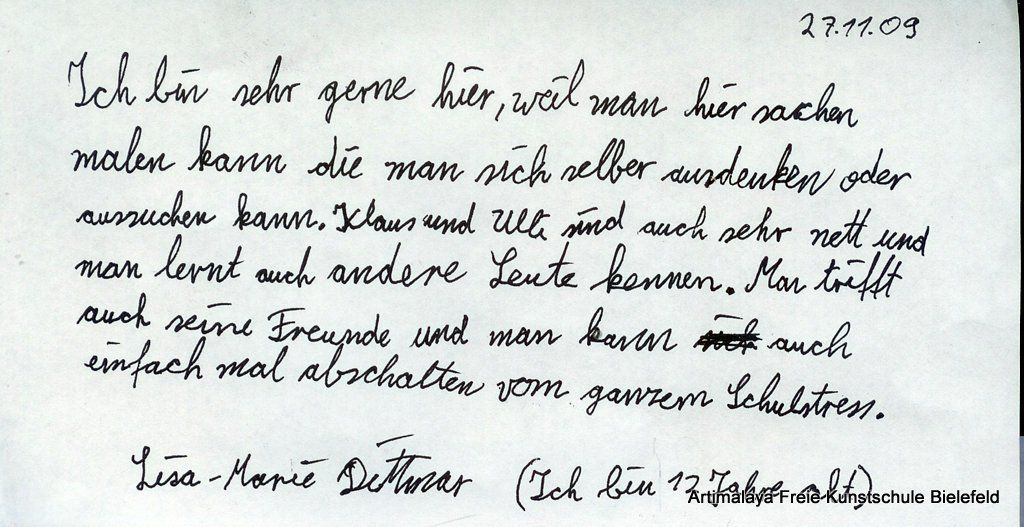 27.11.09
Ich bin sehr gerne hier, weil man hier sachen
malen kann die man sich selber ausdenken oder
aussuchen kann. Klaus und Ulli sind auch sehr nett und
man lernt auch andere Leute kennen. Man trifft
auch seine Freunde und man kann auch
einfach mal abschalten vom ganzem Schulstress.
Lisa-Marie Dettmar (Ich bin 12 Jahre alt)
Artjmalaya Freie Kunstschule Bielefeld